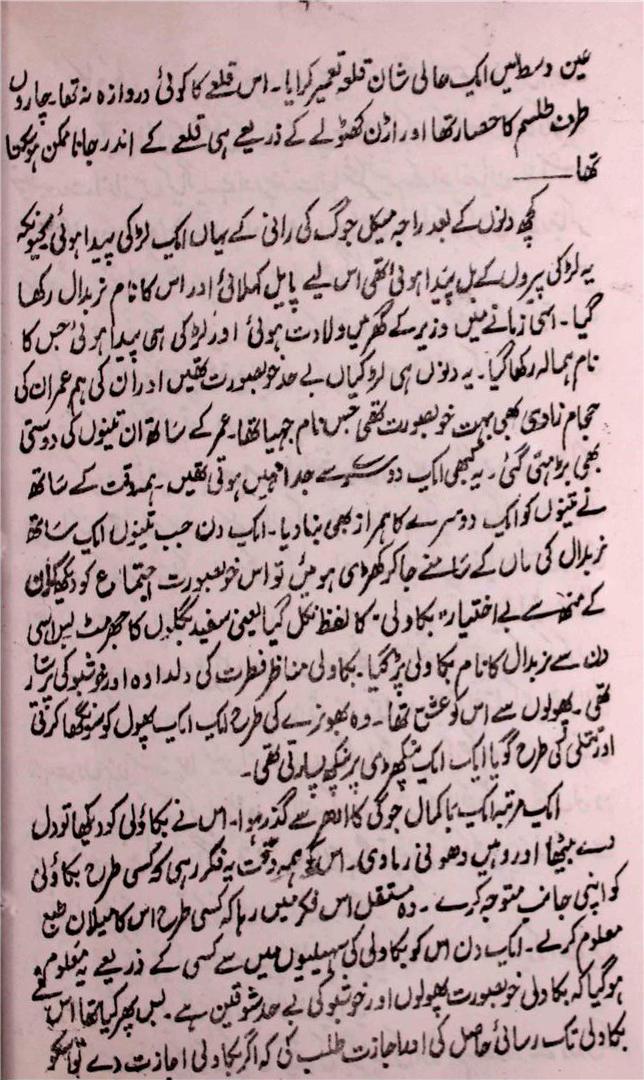 عین وسط میں ایک عالی شان قلعہ تعمیر کرایا۔ اس قلعے کا کوئی دروازہ نہ تھا۔ چاروں
طرف طلسم کا حصار تھا اور اڑن کھٹولے کے ذریعے ہی قلعے کے اندر جانا ممکن ہو سکتا
تھا ــــــ
کچھ دنوں کے بعد راجہ میکل جوگ کی رانی کے یہاں ایک لڑکی پیدا ہوئی کیونکہ
یہ لڑکی پیروں کے بل پیدا ہوئی تھی اس لیے پایل کہلائی اور اس کا نام نربدال رکھا
گیا۔ اسی زمانے میں وزیر کے گھر میں ولادت ہوئی اور لڑکی ہی پیدا ہوئی جس کا
نام ہمالہ رکھا گیا۔ یہ دنوں ہی لڑکیاں بے حد خوبصورت تھیں اور ان کی ہم عمر ان کی
حجام زادی بھی بہت خوبصورت تھی جس نام جہیا تھا۔ عمر کے ساتھ ان تینوں کی دوستی
بھی بڑھتی گئی۔ یہ کبھی ایک دوسرے سے جدا نہیں ہوتی تھیں۔ ہمہ وقت کے ساتھ
نے تینوں کو ایک دوسرے کا ہمراز بھی بنا دیا۔ ایک دن جب تینوں ایک ساتھ
نربدال کی ماں کے سامنے جا کر کھڑی ہوئیں تو اس خوبصورت اجتماع کو دیکھ کر ان
کے منھ سے بے اختیار "بکاولی" کا لفظ نکل گیا یعنی سفید بگلوں کا جھرمٹ بس اسی
دن سے نربدال کا نام بکاولی پڑ گیا۔ بکاولی مناظر فطرت کی دلدادہ اور خوشبو کی پرستار
تھی۔ پھولوں سے اس کو عشق تھا۔ وہ بھونرے کی طرح ایک ایک پھول کو سونگھا کرتی
اور تتلی کی طرح گویا ایک ایک پنکھڑی پر پنکھ پسارتی تھی۔
ایک مرتبہ ایک با کمال جوگی کا ادھر سے گذر ہوا۔ اس نے بکاؤلی کو دیکھا تو دل
دے بیٹھا اور وہیں دھونی رمادی۔ اس کو ہمہ وقت یہ فکر رہی کہ کسی طرح بکاؤلی
کو اپنی جانب متوجہ کرے۔ وہ مستقل اس فکر میں رہا کہ کسی طرح اس کا میلان طبع
معلوم کرلے۔ ایک دن اس کو بکاولی کی سہیلیوں میں سے کسی کے ذریعے یہ معلوم
ہو گیا کہ بکاولی خوبصورت پھولوں اور خوشبو کی بے حد شوقین ہے۔ بس پھر کیا تھا اس نے
بکاولی تک رسائی حاصل کی اور اجازت طلب کی کہ اگر بکاولی اجازت دے تو اسکو